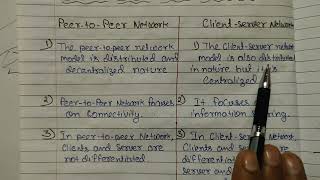 Peer-to-Peer Network
1) The peer-to-peer network
model is distributed and
decentralized nature
2) Peer-to-Peer Network focuses
on Connectivity.
3) In peer-to-peer Network,
Clients and Server are
not differentiated.
Client-Server Network
1) The Client-Server network
model is also distributed
in nature but
Centralized
2) It focuses
information
3) In Client-Server
Clients and
differentiat
server and